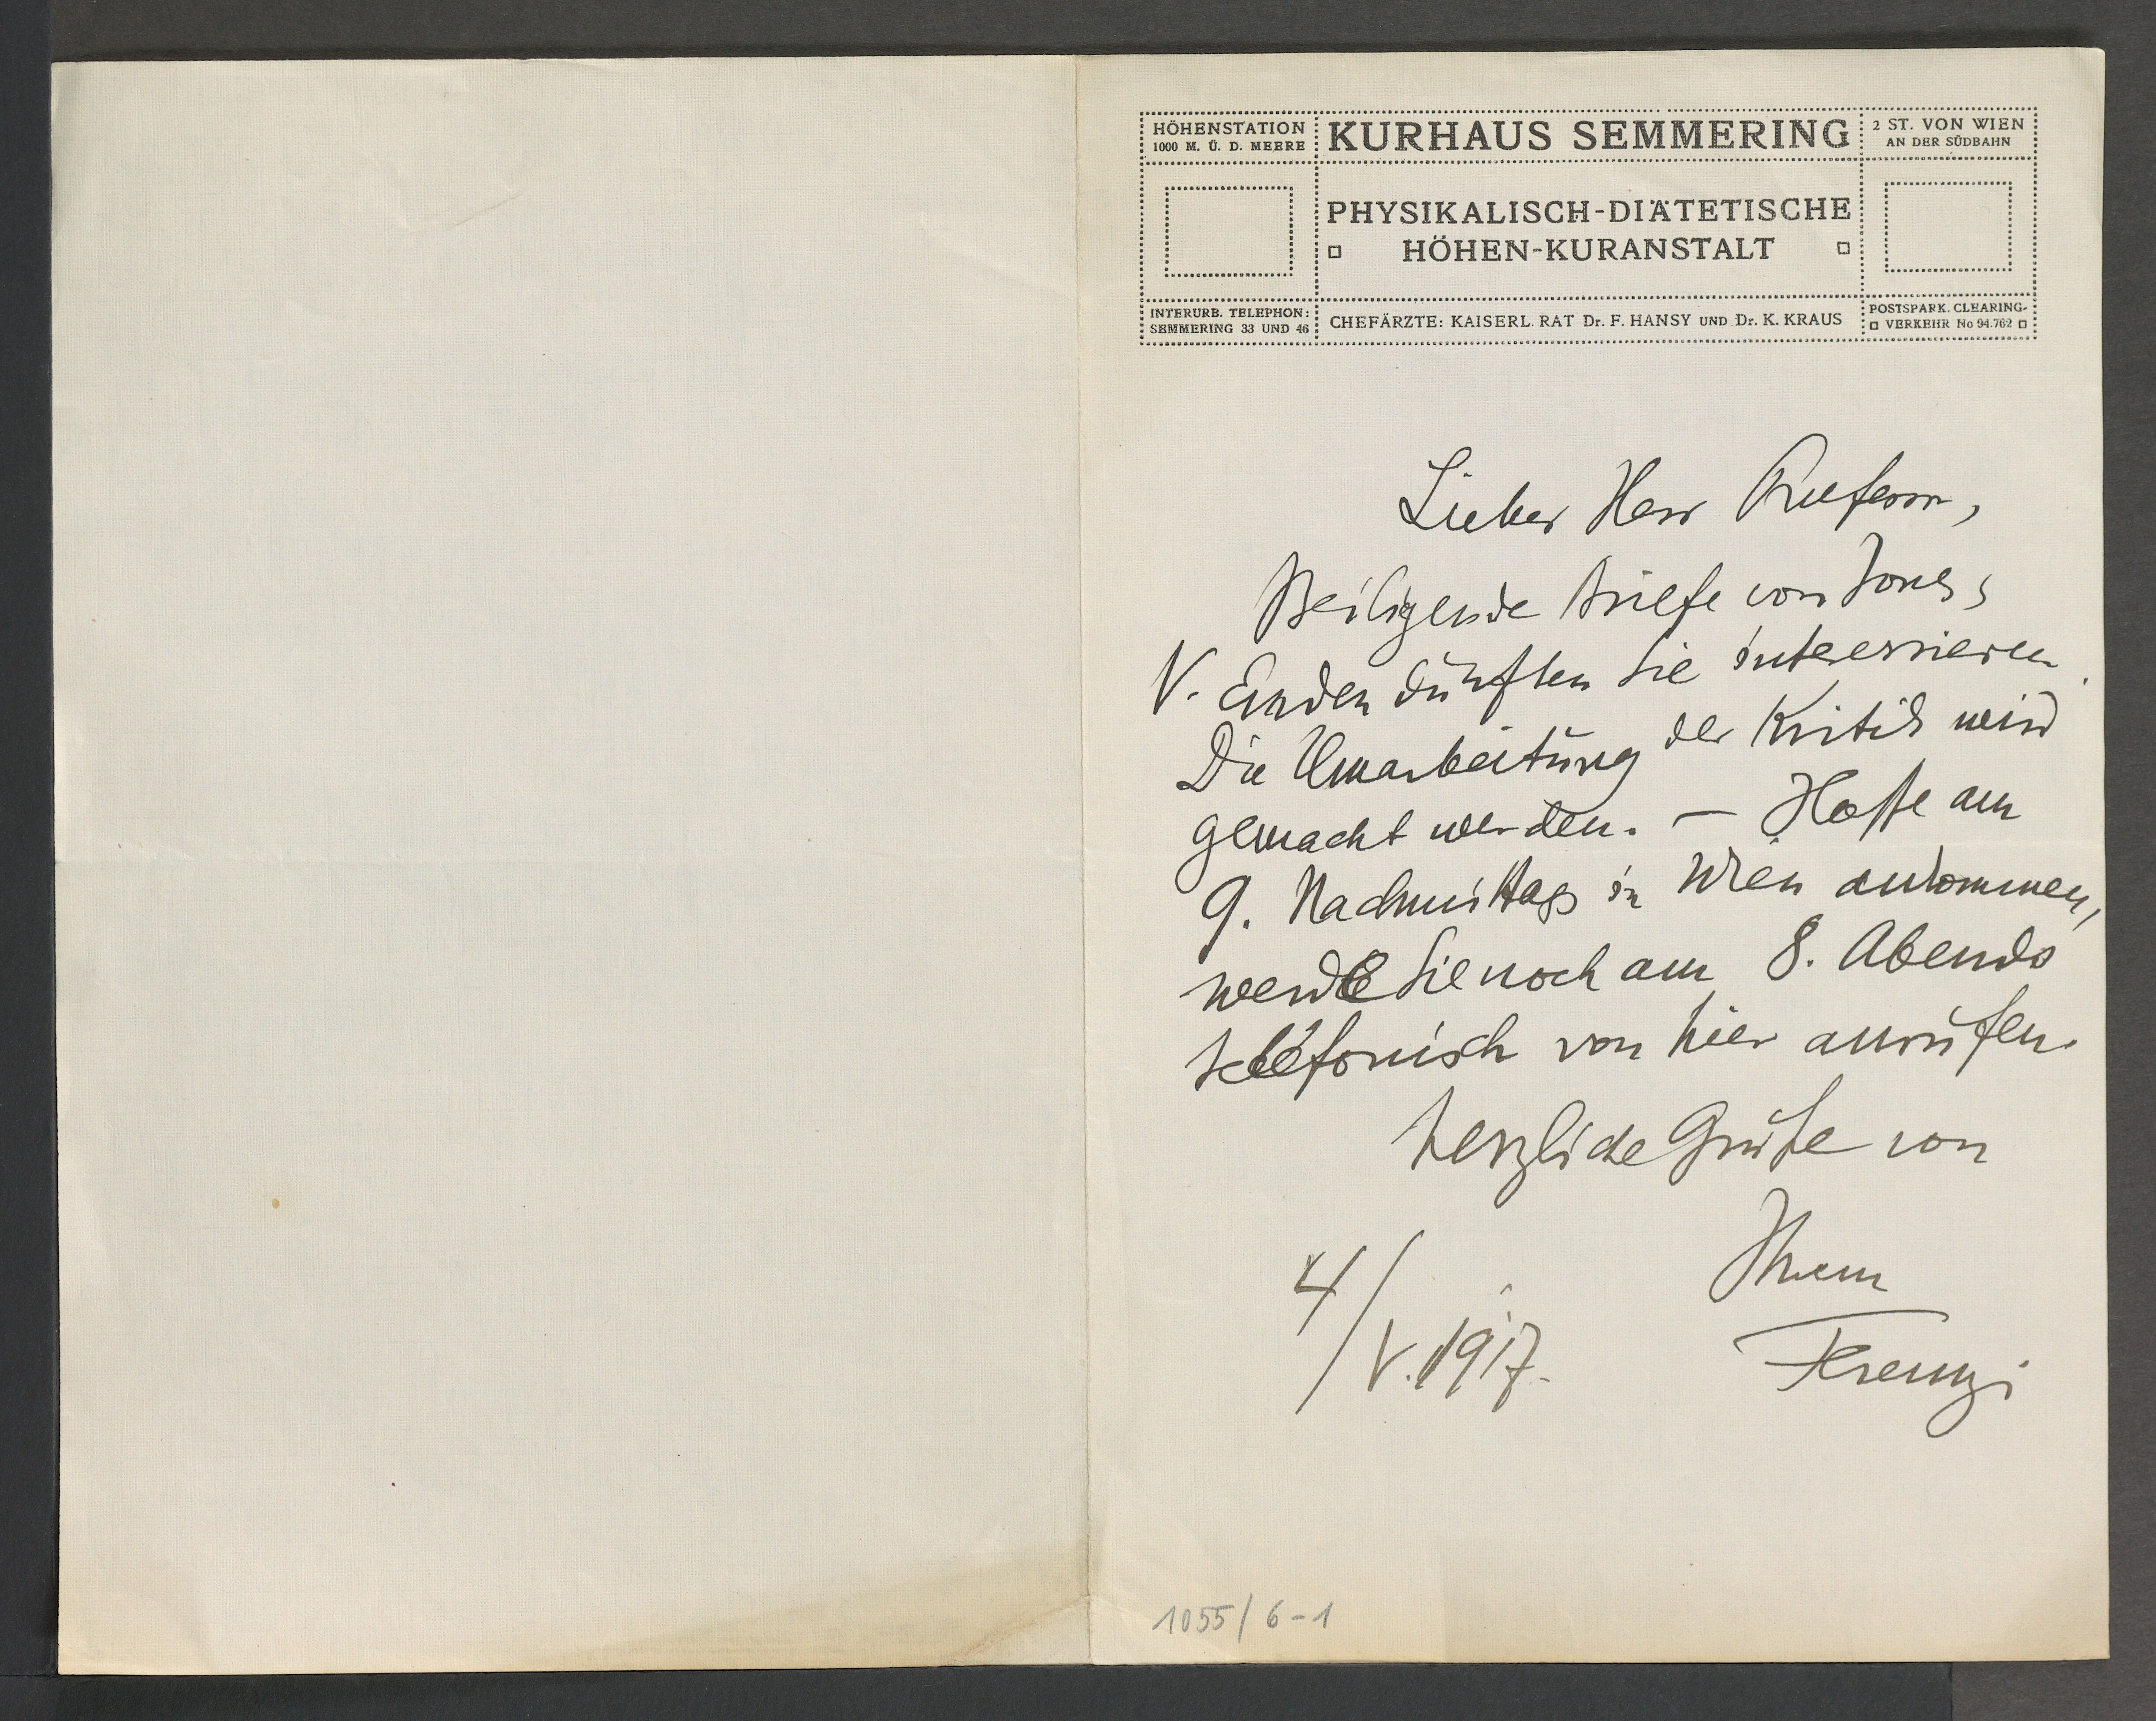 HÖHENSTATION
1000 M. Ü. D. MEERE
KURHAUS SEMMERING
2 ST. VON WIEN
AN DER SÜDBAHN
PHYSIKALISCH-DIÄTETISCHE
HÖHEN-KURANSTALT
INTERURB. TELEPHON:
SEMMERING 33 UND 46
CHEFÄRZTE: KAISERL. RAT Dr. F. HANSY UND Dr. K. KRAUS
POSTSPARK. CLEARING-
VERKEHR No 94.762
Lieber Herr Professor,
Beiligende Briefe von Jones,
V. Emden dürften Sie interessieren.
Die Umarbeitung der Kritik wird
gemacht werden. — Hoffe am
9. Nachmittags in Wien ankommen,
werde Sie noch am 8. Abends
telefonisch von hier anrufen.
Herzliche Grüße von
Ihrem
Ferenczi
4/V. 1917.
1055/6-1